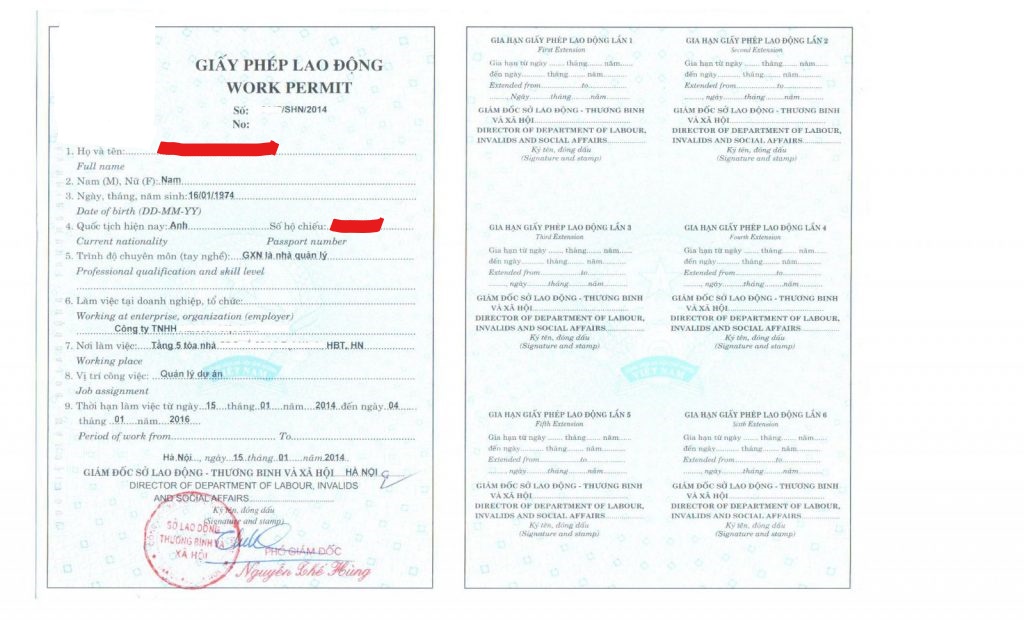 GIẤY PHÉP LAO ĐỘNG
WORK PERMIT
Số: /SHN/2014
No:
1. Họ và tên:
Full name
2. Nam (M), Nữ (F): Nam
3. Ngày, tháng, năm sinh: 16/01/1974
Date of birth (DD-MM-YY)
4. Quốc tịch hiện nay: Anh Số hộ chiếu:
Current nationality Passport number
5. Trình độ chuyên môn (tay nghề): GXN là nhà quản lý
Professional qualification and skill level
6. Làm việc tại doanh nghiệp, tổ chức:
Working at enterprise, organization (employer)
Công ty TNHH
7. Nơi làm việc: Tầng 5 tòa nhà HBT, HN
Working place
8. Vị trí công việc: Quản lý dự án
Job assignment
9. Thời hạn làm việc từ ngày 15 tháng 01 năm 2014 đến ngày 04
tháng 01 năm 2016
Period of work from To
Hà Nội, ngày 15 tháng 01 năm 2014
GIÁM ĐỐC SỞ LAO ĐỘNG - THƯƠNG BINH VÀ XÃ HỘI HÀ NỘI
DIRECTOR OF DEPARTMENT OF LABOUR, INVALIDS
AND SOCIAL AFFAIRS
Ký tên, đóng dấu
(Signature and stamp)
SỞ LAO ĐỘNG
THƯƠNG BINH VÀ
XÃ HỘI
PHÓ GIÁM ĐỐC
Nguyễn Thế Hùng
VIỆT NAM
GIA HẠN GIẤY PHÉP LAO ĐỘNG LẦN 1
First Extension
Gia hạn từ ngày ...... tháng ...... năm......
đến ngày......... tháng ......... năm.........
Extended from............to............
........, Ngày......tháng......năm......
GIÁM ĐỐC SỞ LAO ĐỘNG - THƯƠNG BINH
VÀ XÃ HỘI
DIRECTOR OF DEPARTMENT OF LABOUR,
INVALIDS AND SOCIAL AFFAIRS
Ký tên, đóng dấu
(Signature and stamp)
GIA HẠN GIẤY PHÉP LAO ĐỘNG LẦN 2
Second Extension
Gia hạn từ ngày ...... tháng ...... năm......
đến ngày......... tháng ......... năm.........
Extended from............to............
........, ngày......tháng......năm......
GIÁM ĐỐC SỞ LAO ĐỘNG - THƯƠNG BINH
VÀ XÃ HỘI
DIRECTOR OF DEPARTMENT OF LABOUR,
INVALIDS AND SOCIAL AFFAIRS
Ký tên, đóng dấu
(Signature and stamp)
GIA HẠN GIẤY PHÉP LAO ĐỘNG LẦN 3
Third Extension
Gia hạn từ ngày ...... tháng ...... năm......
đến ngày......... tháng ......... năm.........
Extended from............to............
........, ngày......tháng......năm......
GIÁM ĐỐC SỞ LAO ĐỘNG - THƯƠNG BINH
VÀ XÃ HỘI
DIRECTOR OF DEPARTMENT OF LABOUR,
INVALIDS AND SOCIAL AFFAIRS
Ký tên, đóng dấu
(Signature and stamp)
GIA HẠN GIẤY PHÉP LAO ĐỘNG LẦN 4
Fourth Extension
Gia hạn từ ngày ...... tháng ...... năm......
đến ngày......... tháng ......... năm.........
Extended from............to............
........, ngày......tháng......năm......
GIÁM ĐỐC SỞ LAO ĐỘNG - THƯƠNG BINH
VÀ XÃ HỘI
DIRECTOR OF DEPARTMENT OF LABOUR,
INVALIDS AND SOCIAL AFFAIRS
Ký tên, đóng dấu
(Signature and stamp)
VIỆT NAM
GIA HẠN GIẤY PHÉP LAO ĐỘNG LẦN 5
Fifth Extension
Gia hạn từ ngày ...... tháng ...... năm......
đến ngày......... tháng ......... năm.........
Extended from............to............
........, ngày......tháng......năm......
GIÁM ĐỐC SỞ LAO ĐỘNG - THƯƠNG BINH
VÀ XÃ HỘI
DIRECTOR OF DEPARTMENT OF LABOUR,
INVALIDS AND SOCIAL AFFAIRS
Ký tên, đóng dấu
(Signature and stamp)
GIA HẠN GIẤY PHÉP LAO ĐỘNG LẦN 6
Sixth Extension
Gia hạn từ ngày ...... tháng ...... năm......
đến ngày......... tháng ......... năm.........
Extended from............to............
........, ngày......tháng......năm......
GIÁM ĐỐC SỞ LAO ĐỘNG - THƯƠNG BINH
VÀ XÃ HỘI
DIRECTOR OF DEPARTMENT OF LABOUR,
INVALIDS AND SOCIAL AFFAIRS
Ký tên, đóng dấu
(Signature and stamp)